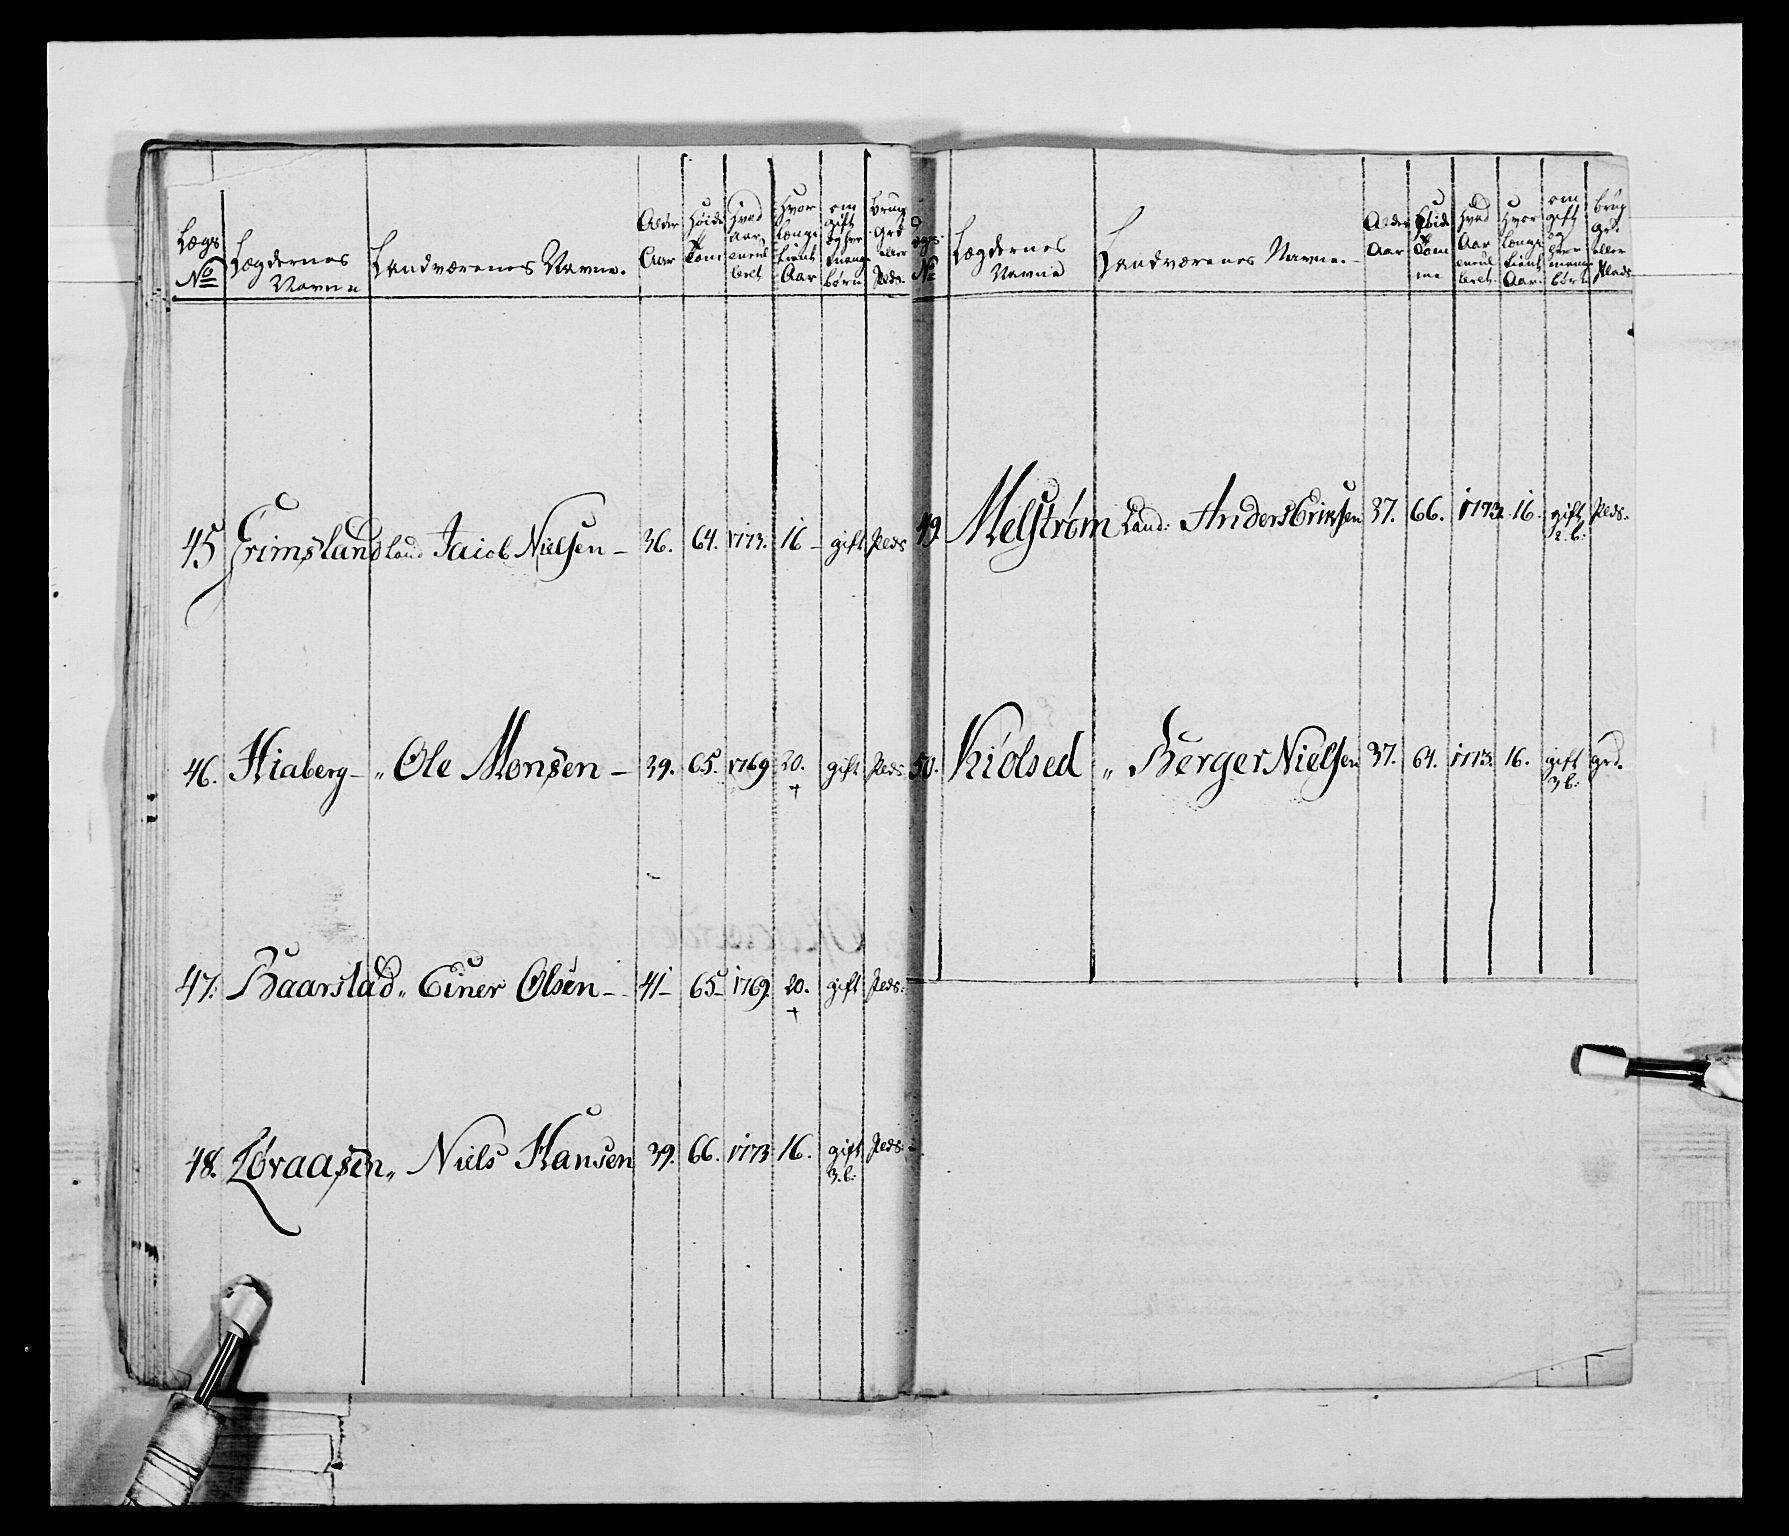 Lægs No | Lægdernes Navne | Landværenes Navne. | Alder Aar | Høide Tom | Hvad Aar enrul leret | Hvor længe tient Aar | om gift og hvor mange børn | brug Grd eller Plds.
45 Grimsland Land Jaiob Nielsen – 36. 64. 1773. 16 – gift Plds
46. Hiaberg – „ Ole Monsen – 39. 65. 1769 20. gift Plds
+
47. Baarstad „ Einer Olsen – 41 – 65 – 1769. 20. gift Plds:
+
48. Løraasen „ Niels Hansen 39. 66. 1773 16. gift Plds:
3. b:
Lægs No | Lægdernes Navne | Landværenes Navne. | Alder Aar | Høide Tom me | Hvad Aar enrul leret. | Hvor længe tient Aar. | om gift og hvor mange børn | brug grd eller Plads
49 Melstrøm Land: Anders Eriksen 37. 66. 1773. 16. gift Plds.
2. b:
50. Kiolsed „ Berger Nielsen 37. 64. 1773. 16. gift grd.
3 b: